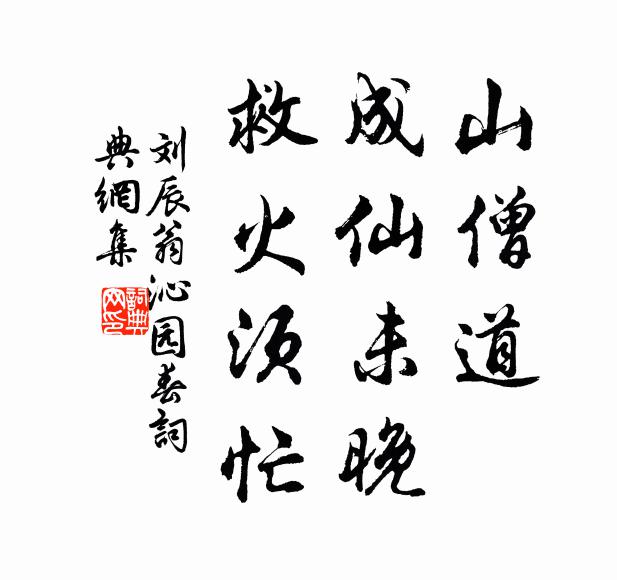 山僧道
成仙未晚
救火须忙
刘辰翁沁园春詞
典網集
詞典
网印